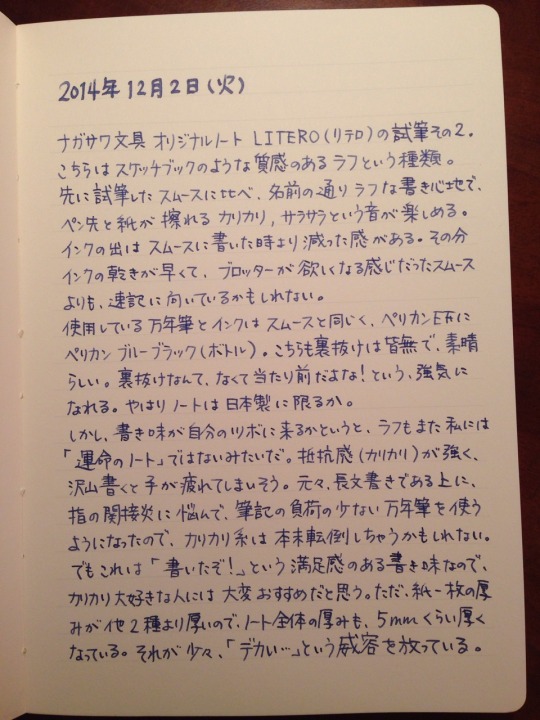 2014年12月2日(火)
ナガサワ文具 オリジナルノート LITERO(リテロ)の試筆その2.
こちらはスケッチブックのような質感のあるラフという種類。
先に試筆したスムースに比べ、名前の通りラフな書き心地で、
ペン先と紙が擦れるカリカリ,サラサラという音が楽しめる。
インクの出はスムースに書いた時より減った感がある。その分
インクの乾きが早くて、ブロッターが欲しくなる感じだったスムース
よりも、速記に向いているかもしれない。
使用している万年筆とインクはスムースと同じく、ペリカンE万に
ペリカンブルーブラック(ボトル)。こちらも裏抜けは皆無で、素晴
らしい。裏抜けなんて、なくて当たり前だよな!という、強気に
なれる。やはりノートは日本製に限るか。
しかし、書き味が自分のツボに来るかというと、ラフもまた私には
「運命のノート」ではないみたいだ。抵抗感(カリカリ)が強く、
沢山書くと手が疲れてしまいそう。元々、長文書きである上に、
指の関接炎に悩んで、筆記の負荷の少ない万年筆を使う
ようになったので、カリカリ系は本末転倒しちゃうかもしれない。
でもこれは「書いたぞ!」という満足感のある書き味なので、
カリカリ大好きな人には大変おすすめだと思う。ただ、紙一枚の厚
みが他2種より厚いので、ノート全体の厚みも、5mmくらい厚く
なっている。それが少々、「デカい…」という威容を放っている。